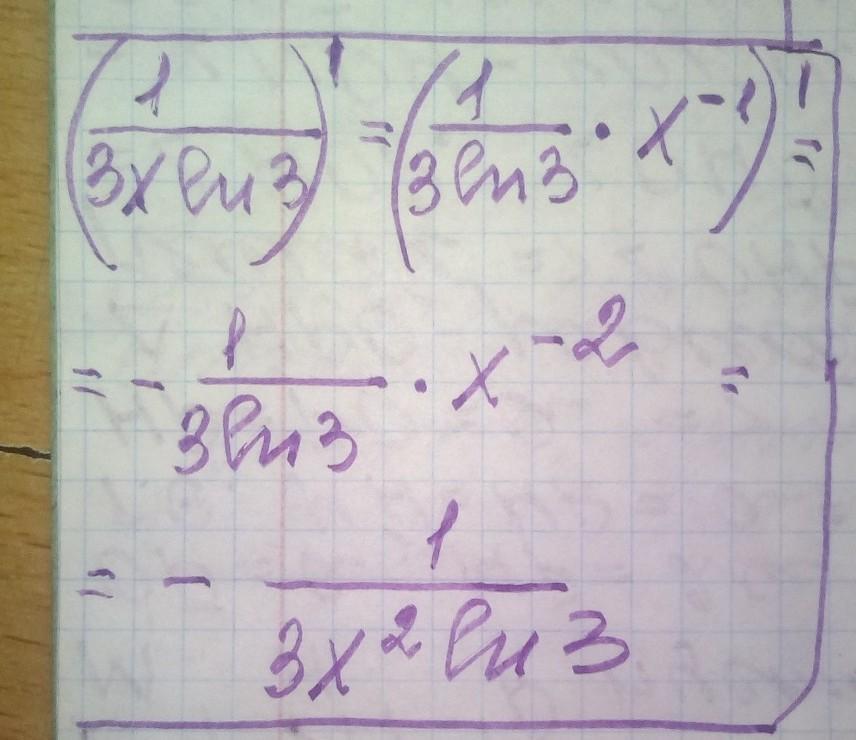 (1/(3x ln 3))' = (1/(3 ln 3) · x⁻¹)' =
= - 1/(3 ln 3) · x⁻² =
= - 1/(3x² ln 3)